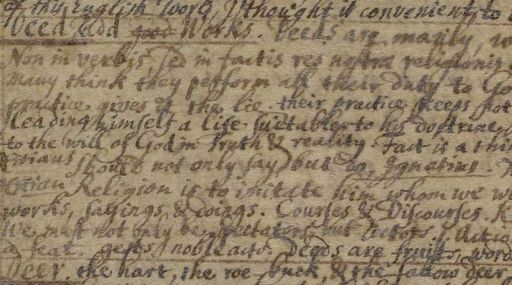 of this English word, I thought it convenient to
Deed and good Works. Deeds are manly, w
Non in verbis, sed in factis res nostra religionis
many think they perform all their duty to Go
practice gives the lie. their practice keeps not
leading himself a life suitable to his doctrine
to the will of God in truth & reality. fact is a thin
should not only say but do, Ignatius
Religion is to imitate him whom we wo
works, sayings, & doings. Courses & Discourses.
We must not only be spectators but actors. Actio
a feat. gests, noble acts. Deeds are fruits, word
Deer. the hart, the roe-buck, & the fallow deer